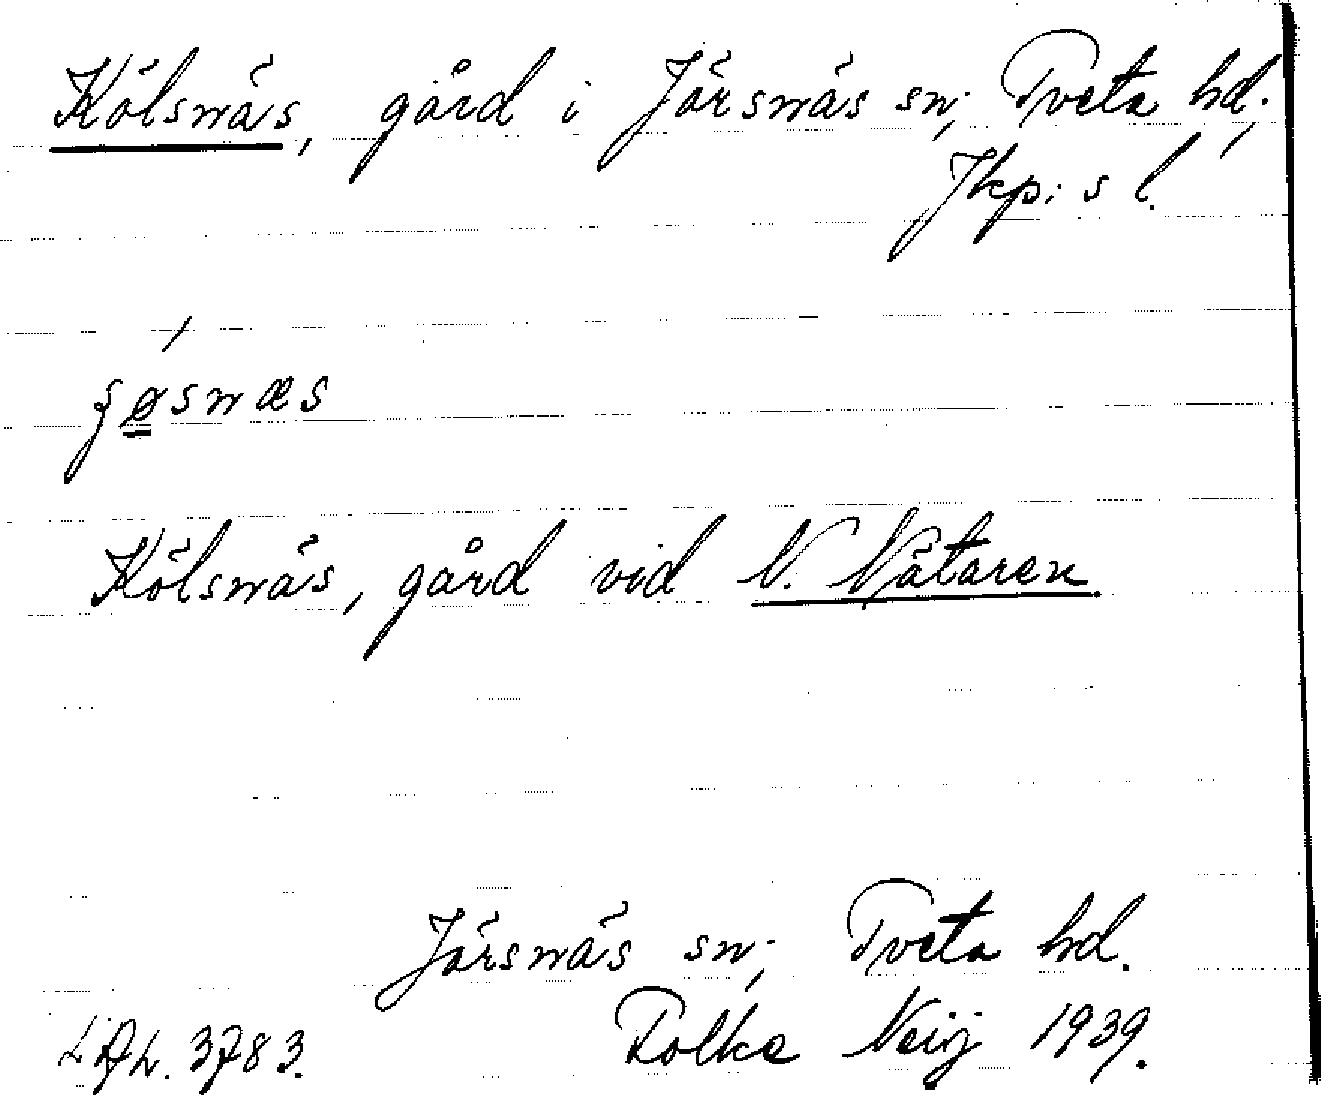 Kölsnäs, gård i Järsnäs sn; Tveta hd;
Jkp:s l.
Kölsnäs, gård vid N. Nätaren.
Järsnäs sn; Tveta hd.
Folke Neij 1939.
3783.